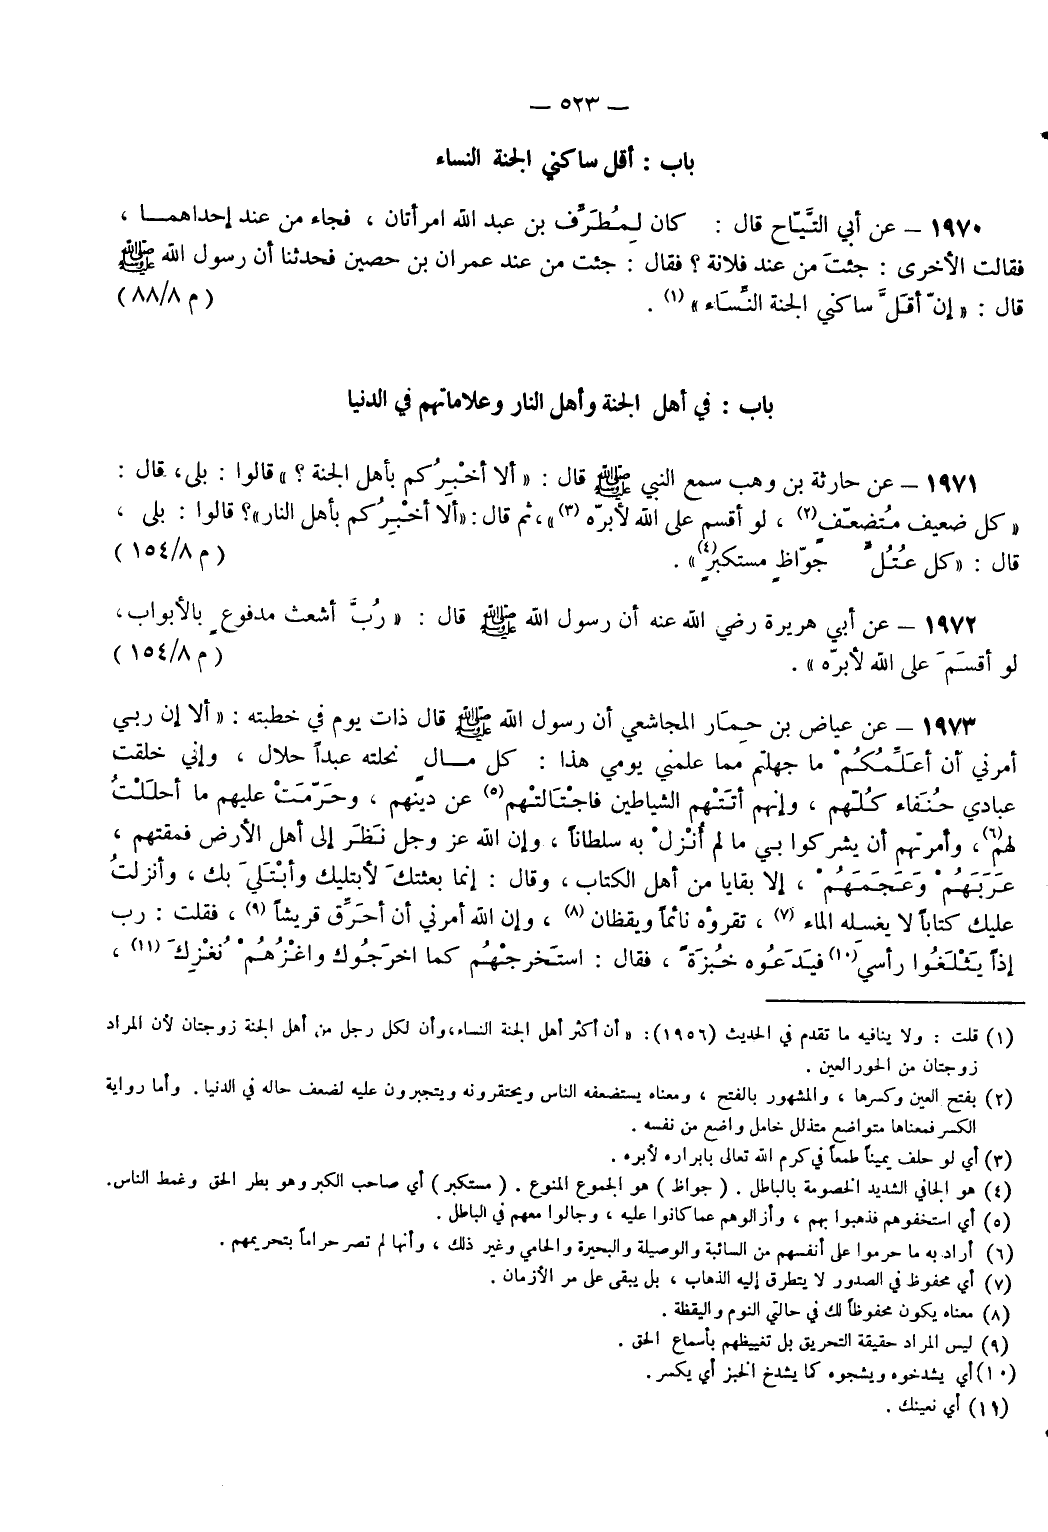 — ٥٢٣ —
باب : أقل ساكني الجنة النساء
١٩٧٠ – عن أبي التَّيّاح قال : كان لِمُطَرِّف بن عبد الله امرأتان ، فجاء من عند إحداهمـا ،
فقالت الأخرى : جئتَ من عند فلانة ؟ فقال : جئت من عند عمران بن حصين فحدثنا أن رسول الله ﷺ
قال : « إنّ أقلَّ ساكني الجنة النِّسَاء » (١) . ( م ٨٨/٨ )
باب : في أهل الجنة وأهل النار وعلاماتهم في الدنيا
١٩٧١ – عن حارثة بن وهب سمع النبي ﷺ قال : « ألا أخْبِرُكم بأهل الجنة ؟ » قالوا : بلى، قال :
« كل ضعيف مُتضعّف (٢) ، لو أقسم على الله لأبرّه (٣) »، ثم قال: «ألا أخْبِرُكم بأهل النار»؟ قالوا : بلى ،
قال : «كل عُتُلٍّ جوّاظٍ مستكبرٍ (٤)» . ( م ١٥٤/٨ )
١٩٧٢ – عن أبي هريرة رضي الله عنه أن رسول الله ﷺ قال : « رُبَّ أشعث مدفوعٍ بالأبواب،
لو أقسَمَ على الله لأبرّه » . ( م ١٥٤/٨ )
١٩٧٣ – عن عياض بن حِمَار المجاشعي أن رسول الله ﷺ قال ذات يوم في خطبته : « ألا إن ربي
أمرني أن أعَلِّمُكُمْ ما جهلتم مما علمني يومي هذا : كل مـالٍ نحلته عبداً حلال ، وإني خلقت
عبادي حُنَفاء كُلّهم ، وإنهم أتَتْهم الشياطين فاجْتَالتْهم (٥) عن دينهم ، وحَرّمَتْ عليهم ما أحلَلْتُ
لهم (٦)، وأمرتهم أن يشركوا بي ما لم أُنْزلْ به سلطاناً ، وإن الله عز وجل نَظَرَ إلى أهل الأرض فمقتهم ،
عَرَبَهُمْ وَعَجَمَهُمْ ، إلا بقايا من أهل الكتاب ، وقال : إنما بعثتكَ لأبتليك وأبْتَلِيَ بك ، وأنزلتُ
عليك كتاباً لا يغسله الماء (٧) ، تقرؤه نائماً ويقظان (٨) ، وإن الله أمرني أن أحَرِّق قريشاً (٩) ، فقلت : رب
إذاً يَثْلَغُوا رأسي (١٠) فيَدَعُوه خُبزَةً ، فقال : استَخرجْهُم كما اخرَجُوك واغْزُهُمْ نُغْزِكَ (١١) ،
(١) قلت : ولا ينافيه ما تقدم في الحديث (١٩٥٦): « أن أكثر أهل الجنة النساء،وأن لكل رجل من أهل الجنة زوجتان لأن المراد
زوجتان من الحور العين .
(٢) بفتح العين وكسرها ، والمشهور بالفتح ، ومعناه يستضعفه الناس ويحتقرونه ويتجبرون عليه لضعف حاله في الدنيا . وأما رواية
الكسر فمعناها متواضع متذلل خامل واضع من نفسه .
(٣) أي لو حلف يميناً طمعاً في كرم الله تعالى بابراره لأبره .
(٤) هو الجافي الشديد الخصومة بالباطل . ( جواظ ) هو الجموع المنوع . ( مستكبر ) أي صاحب الكبر وهو بطر الحق وغمط الناس.
(٥) أي استخفوهم فذهبوا بهم ، وأزالوهم عما كانوا عليه ، وجالوا معهم في الباطل .
(٦) أراد به ما حرموا على أنفسهم من السائبة والوصيلة والبحيرة والحامي وغير ذلك ، وأنها لم تصر حراماً بتحريمهم .
(٧) أي محفوظ في الصدور لا يتطرق إليه الذهاب ، بل يبقى على مر الأزمان .
(٨) معناه يكون محفوظاً لك في حالتي النوم واليقظة .
(٩) ليس المراد حقيقة التحريق بل تغييظهم بأسماع الحق .
(١٠) أي يشدخوه ويشجوه كما يشدخ الخبز أي يكسر.
(١١) أي نعينك .